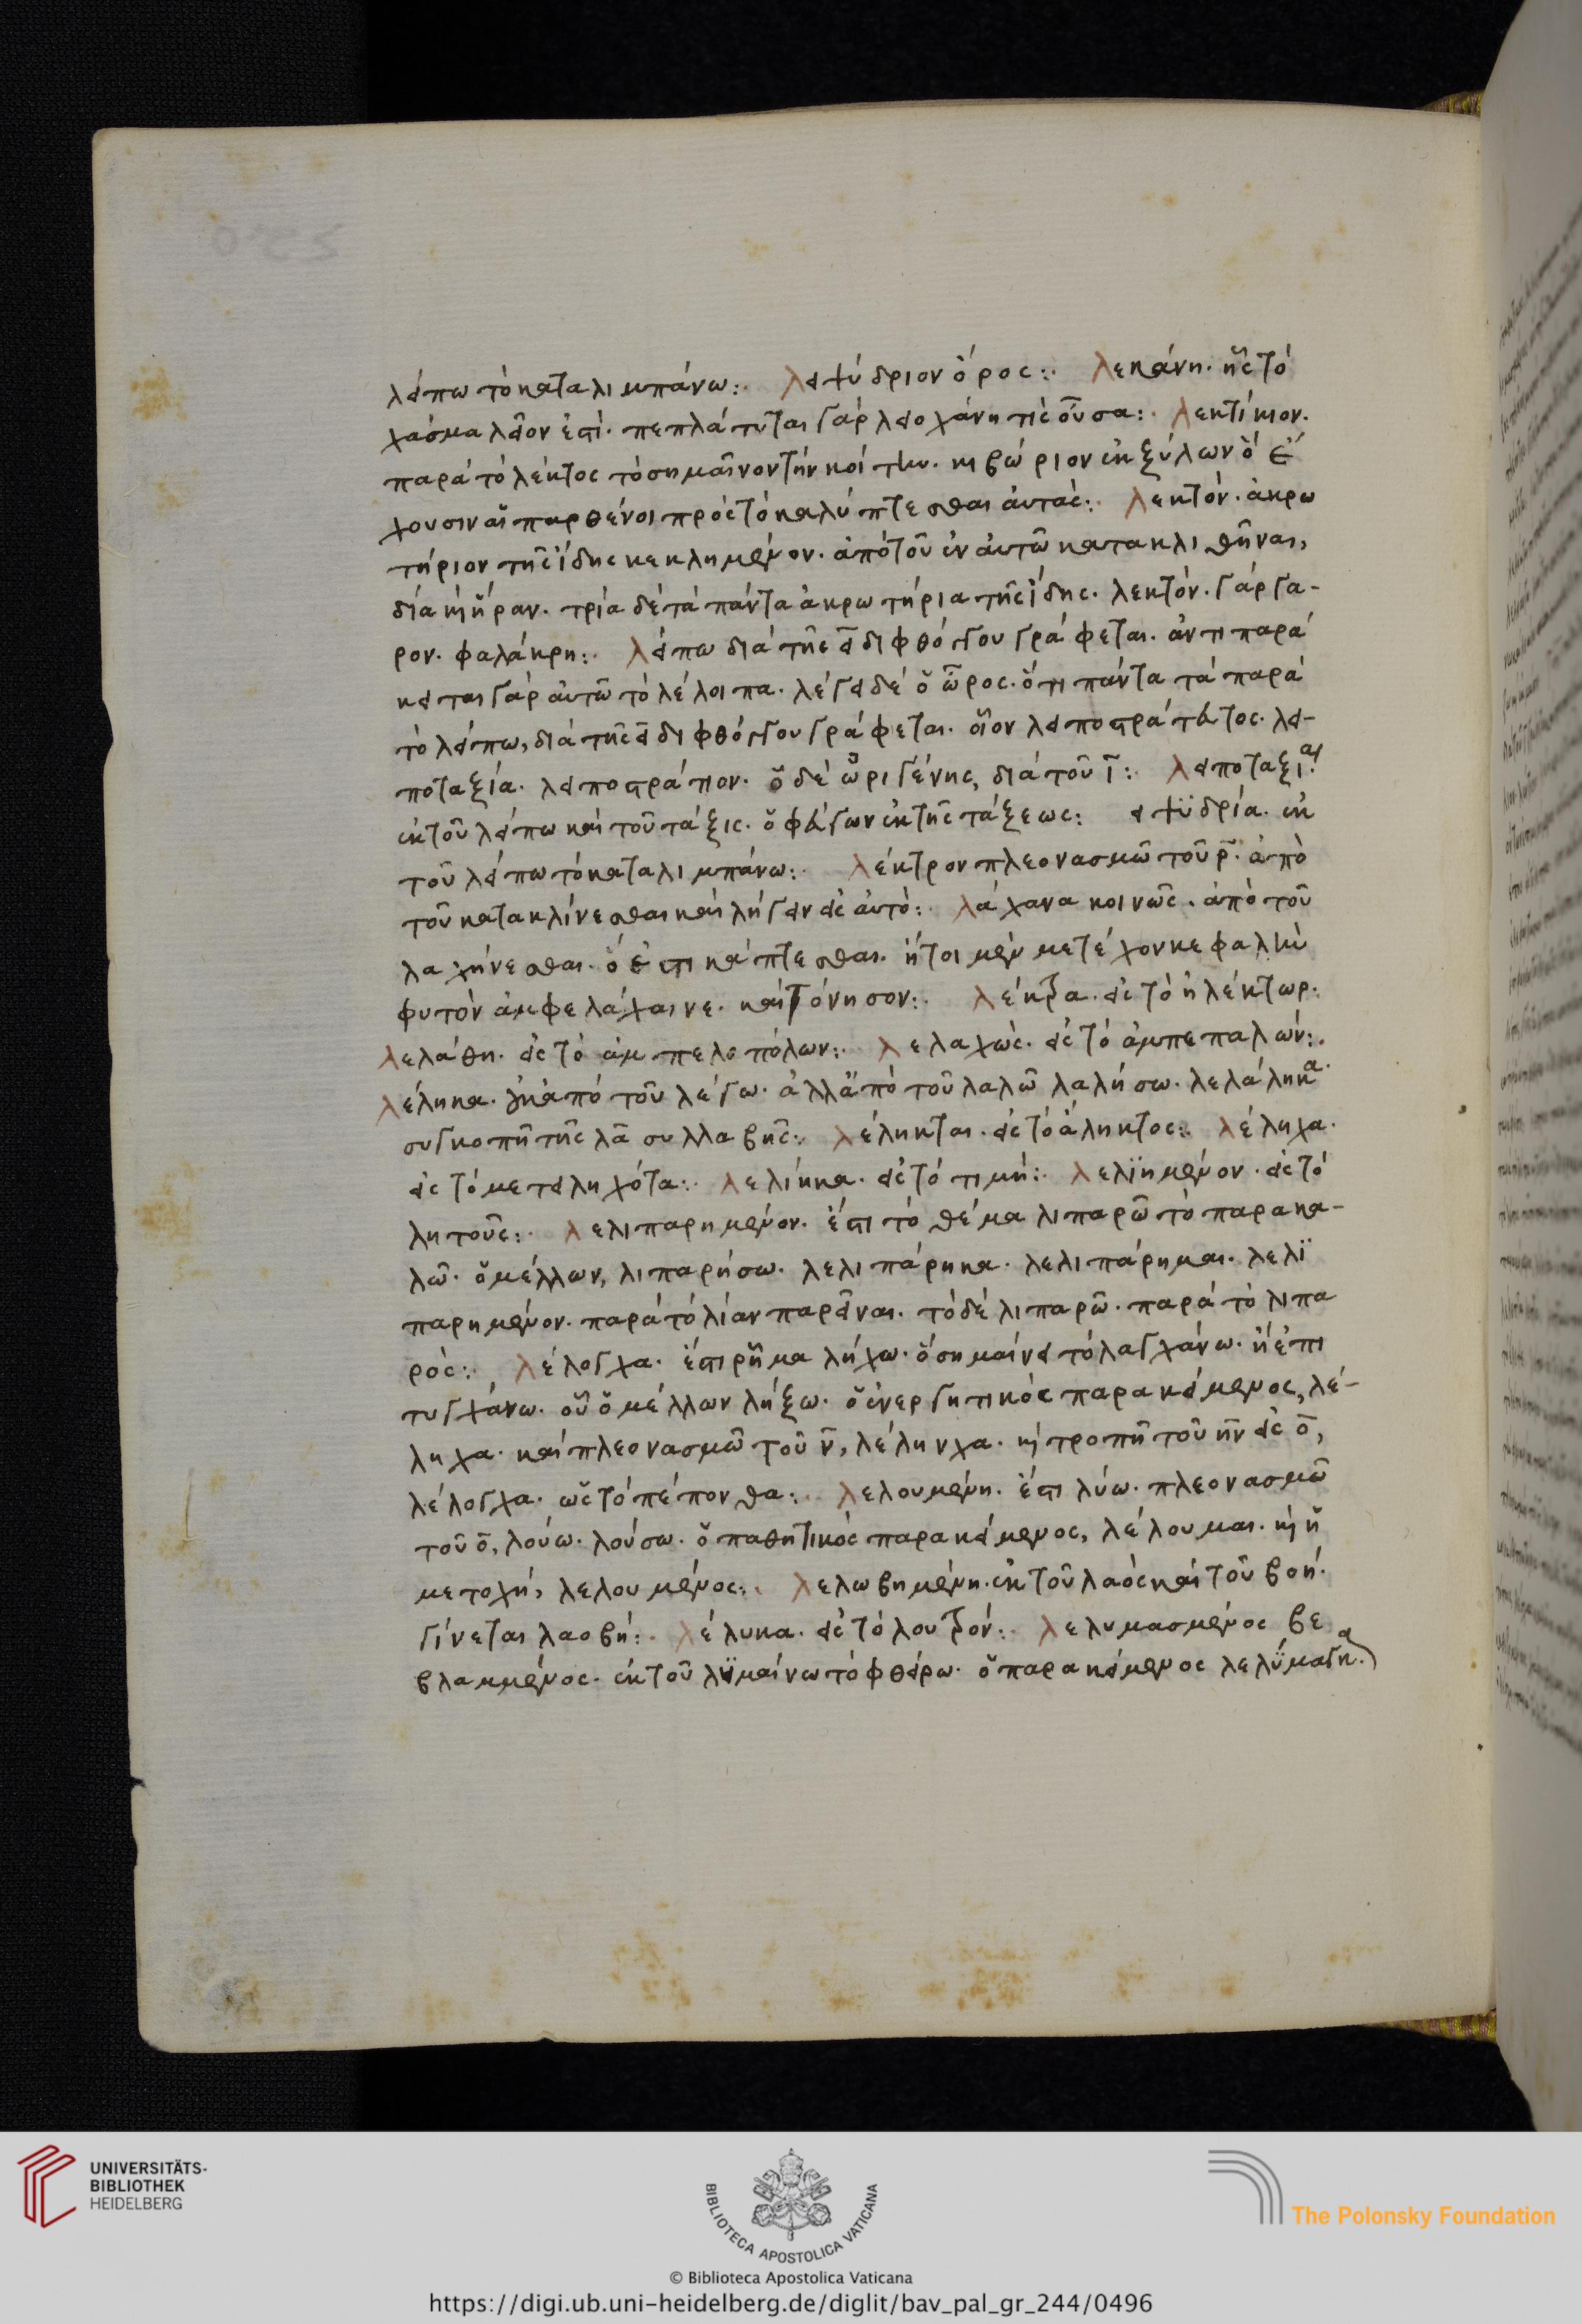 λείπω τὸ καταλιμπάνω:. λειψύδριον ὄρος:. λεκάνη. ἧς τὸ
χάσμα λεῖον ἐστί. πεπλάτυται γὰρ λειοχάνη τίς οὖσα:. λεκτίκιον.
παρὰ τὸ λέκτος τὸ σημαῖνον τὴν κοίτην. κιβώριον ἐκ ξύλων ὃ ἔ
χουσιν αἱ παρθένοι πρὸς τὸ καλύπτεσθαι αὐτάς:. λεκτόν. ἀκρω
τήριον τῆς ἴδης κεκλημένον. ἀπὸ τοῦ ἐν αὐτῶ κατακλιθῆναι,
δία καὶ ἥραν. τρία δὲ τὰ πάντα ἀκρωτήρια τῆς ἴδης. λεκτόν. γάργα-
ρον. φαλάκρη:. λείπω διὰ τῆς ει διφθόγγου γράφεται. ἀντιπαρά
κειται γὰρ αὐτῶ τὸ λέλοιπα. λέγει δὲ ὁ ὦρος. ὅτι πάντα τὰ παρὰ
τὸ λείπω, διὰ τῆς ει διφθόγγου γράφεται. οἷον λειποστράτευτος. λει-
ποταξία. λειποστράτιον. ὁ δὲ ὠριγένης, διὰ τοῦ ι:. λειποταξίαι.
ἐκ τοῦ λείπω καὶ τοῦ τάξις. ὁ φεύγων ἐκ τῆς τάξεως: ειψυδρία. ἐκ
τοῦ λείπω τὸ καταλιμπάνω:. λέκτρον πλεονασμῶ τοῦ ρ. ἀπὸ
τοῦ κατακλίνεσθαι καὶ λήγειν εἰς αὐτό:. λάχανα κοινῶς. ἀπὸ τοῦ
λαχήνεσθαι. ὅ ἐστι κάπτεσθαι. ἤτοι μὲν μετέχον κεφαλὴν
φυτὸν ἀμφελάχαινε. καὶ τόνησον:. λέκτρα. εἰς τὸ ἠλέκτωρ:
λελάθη. εἰς τὸ ἀμπελοπόλων:. λελαχώς. εἰς τὸ ἀμπεπαλών:.
λέληκα. οὐκ ἀπὸ τοῦ λέγω. ἀλλ' ἀπὸ τοῦ λαλῶ λαλήσω. λελάληκα.
συγκοπῆ τῆς λα συλλαβῆς:. λέληκται. εἰς τὸ ἄληκτος:. λέληχα.
εἰς τὸ μεταληχότα:. λελίηκα. εἰς τὸ τιμή:. λελϊημένον. εἰς τὸ
λητοῦς:. λελιπαρημένον. ἔστι τὸ θέμα λιπαρῶ τὸ παρακα-
λῶ. ὁ μέλλων, λιπαρήσω. λελιπάρηκα. λελιπάρημαι. λελϊ
παρημένον. παρὰ τὸ λίαν παρεῖναι. τὸ δὲ λιπαρῶ. παρὰ τὸ λιπα
ρός:. λέλογχα. ἔστι ῥῆμα λήχω. ὃ σημαίνει τὸ λαγχάνω. ἢ ἐπι
τυγχάνω. οὗ ὁ μέλλων λήξω. ὁ ἐνεργητικὸς παρακείμενος, λέ-
ληχα. καὶ πλεονασμῶ τοῦ ν, λέληνχα. καὶ τροπῆ τοῦ ην εἰς ο,
λέλογχα. ὡς τὸ πέπονθα:. λελουμένη. ἔστι λύω. πλεονασμῶ
τοῦ ο, λούω. λούσω. ὁ παθητικὸς παρακείμενος, λέλουμαι. καὶ ἡ
μετοχή, λελουμένος:. λελωβημένη. ἐκ τοῦ λαὸς καὶ τοῦ βοή.
γίνεται λαοβή:. λέλυκα. εἰς τὸ λουτρόν:. λελυμασμένος βε
βλαμμένος. ἐκ τοῦ λϋμαίνω τὸ φθείρω. ὁ παρακείμενος λελϋμαγκα.
UNIVERSITÄTS-
BIBLIOTHEK
HEIDELBERG
BIBLIOTECA APOSTOLICA VATICANA
The Polonsky Foundation
© Biblioteca Apostolica Vaticana
https://digi.ub.uni-heidelberg.de/diglit/bav_pal_gr_244/0496